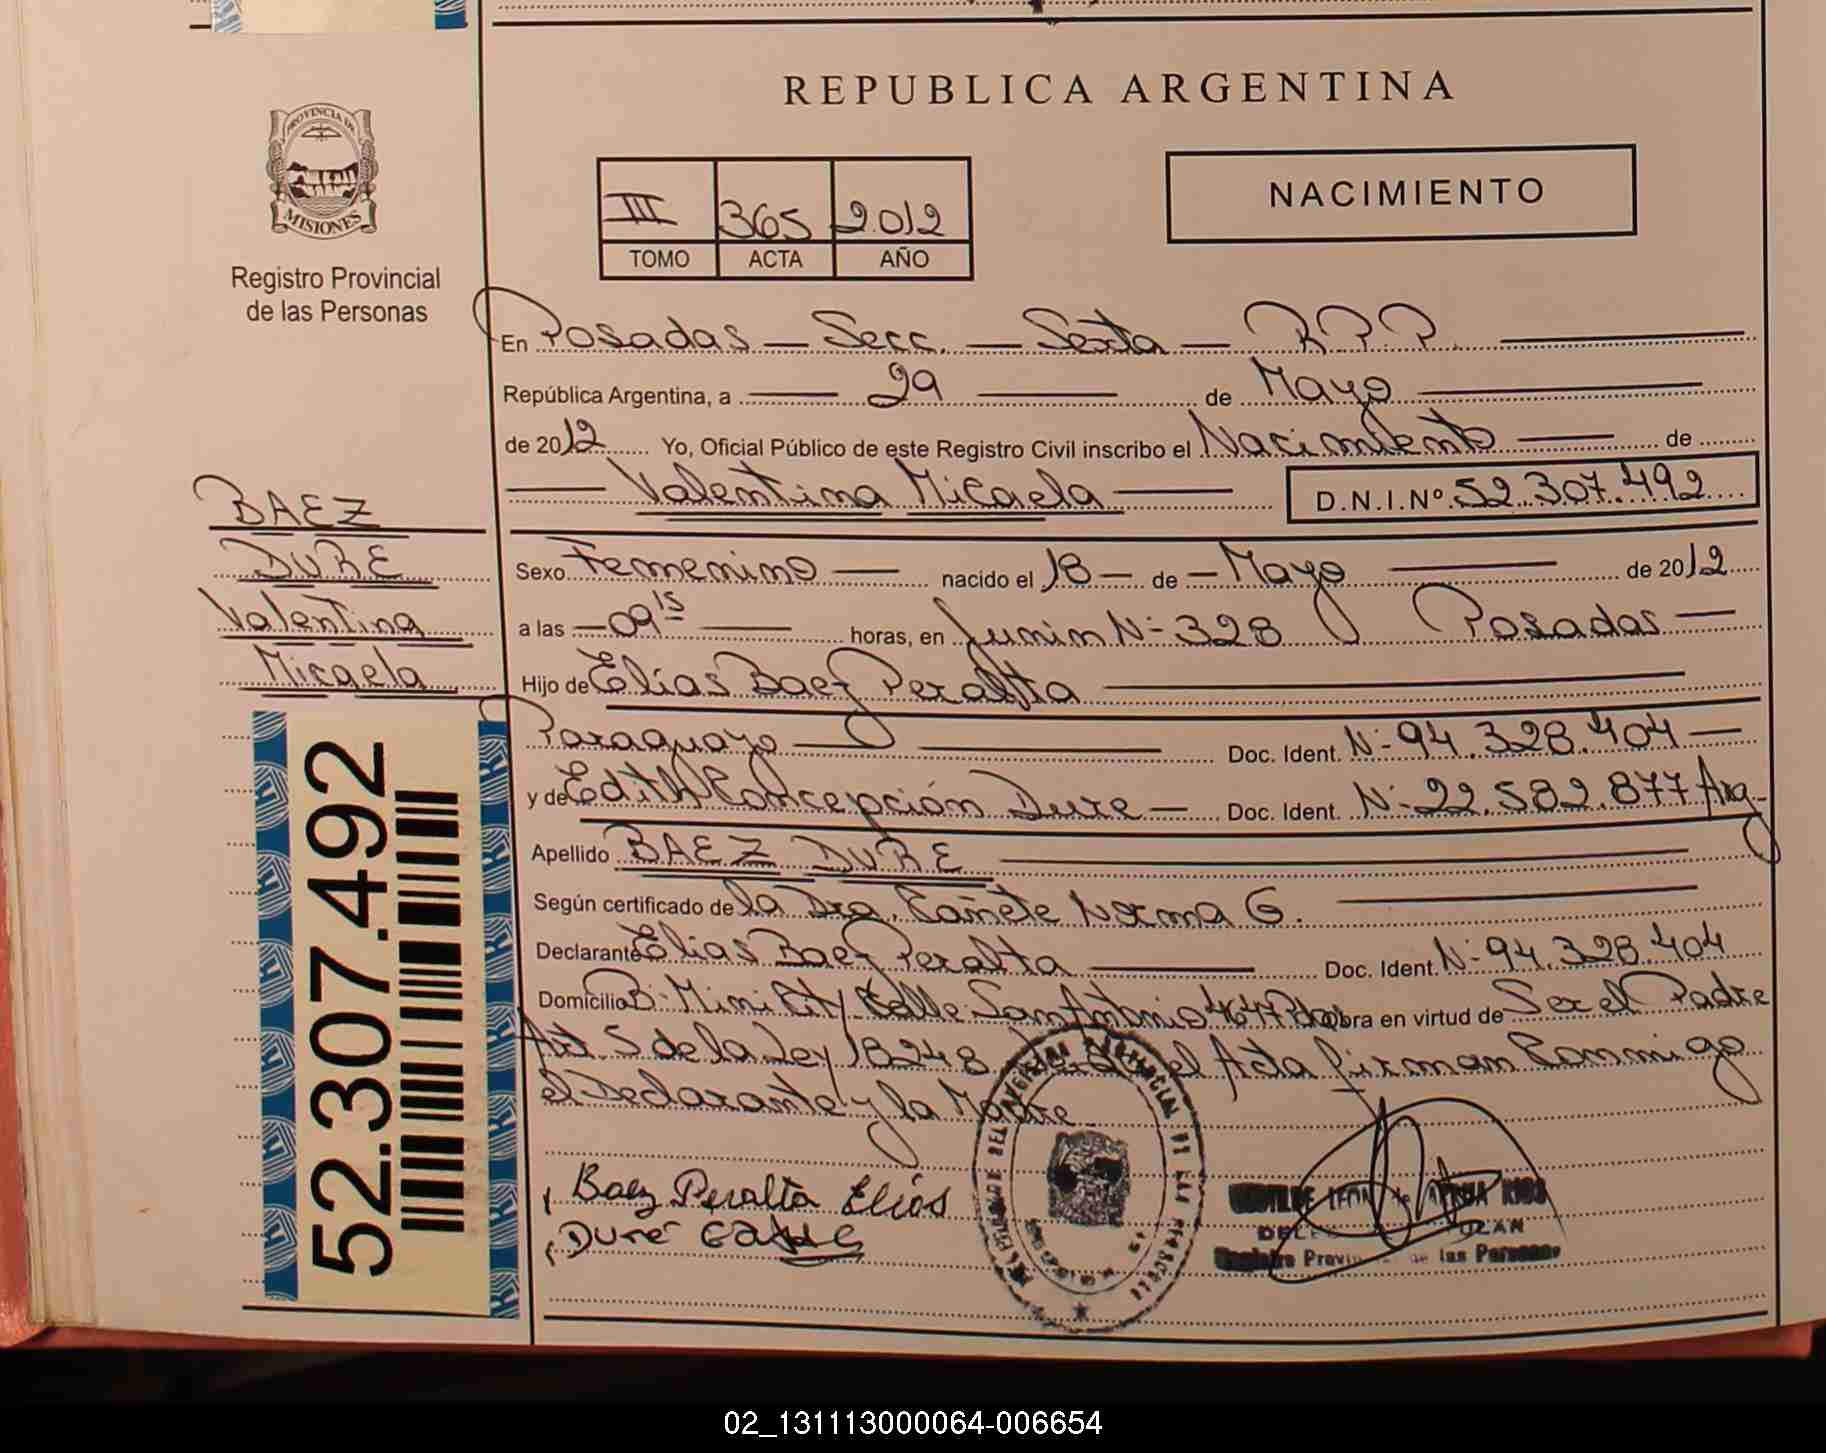 REPUBLICA ARGENTINA
PROVINCIA DE
MISIONES
Registro Provincial
de las Personas
III 365 2.012
TOMO ACTA AÑO
NACIMIENTO
En Posadas — Secc. — Sexta — R.P.P.
República Argentina, a — 29 — de Mayo
de 2012 Yo, Oficial Público de este Registro Civil inscribo el Nacimiento — de
— Valentina Micaela — D.N.I.Nº 52.307.492
BAEZ
DURE
Valentina
Micaela
Sexo Femenino — nacido el 18 — de — Mayo — de 2012
a las — 09 15 — horas, en Junin N° 328 Posadas —
Hijo de Elías Baez Peralta —
Paraguayo — Doc. Ident. N° 94.328.404 —
y de Edith Concepción Dure — Doc. Ident. N° 22.582.877 Arg.
Apellido BAEZ DURE —
Según certificado de la Dra. Cañete Norma G. —
Declarante Elías Baez Peralta — Doc. Ident. N° 94.328.404
Domicilio B° Mini City Calle San Antonio 4647 obra en virtud de Ser el Padre
Art 5 de la Ley 18248 el Acta firman Conmigo
el Declarante y la Madre
Baez Peralta Elías
Duré
Registro Provincial de las Personas
52.307.492
02_131113000064-006654